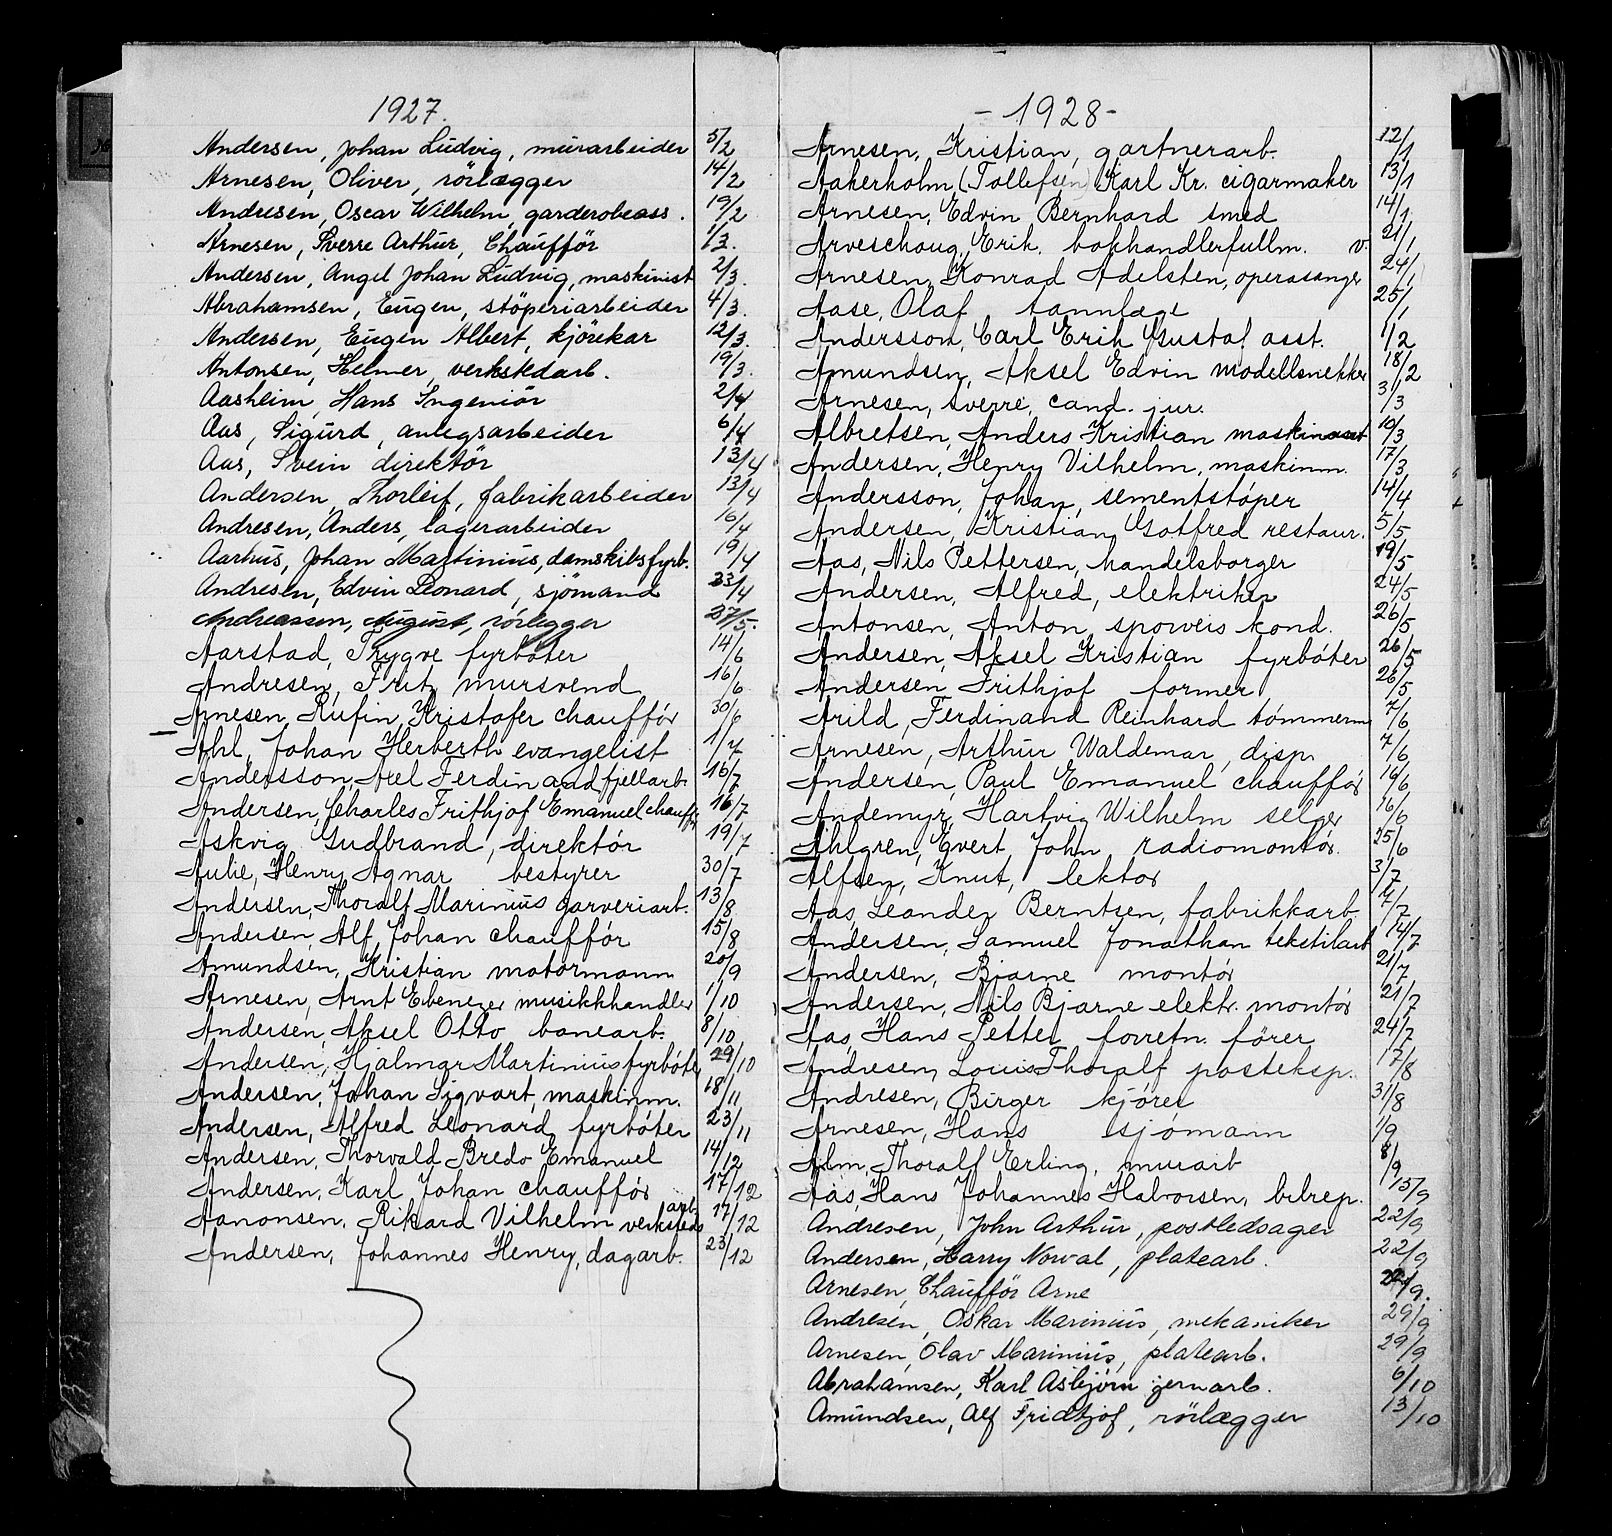 1927.
Andersen, Johan Ludvig, murarbeider 5/2
Arnesen, Oliver, rörlægger 14/2
Andresen, Oscar Wilhelm, garderobeass. 19/2
Arnesen, Sverre Arthur, Chaufför 1/3.
Andersen, Angel Johan Ludvig, maskinist 2/3.
Abrahamsen, Eugen, stöperiarbeider 4/3.
Andersen, Eugen Albert, kjörekar 12/3.
Antonsen, Helmer, verkstedarb. 19/3.
Aasheim, Hans Ingeniör 2/4
Aas, Sigurd, anlegsarbeider 6/4
Aas, Svein direktör 13/4
Andersen, Thorleif, fabrikarbeider 13/4
Andresen, Anders, lagerarbeider 16/4
Aarhus, Johan Martinius, damskibsfyrb. 19/4
Andresen, Edvin Leonard, sjömand 23/4
Andreassen, August, rörlegger 27/5.
Aarstad, Trygve fyrbøter 14/6
Andresen, Fritz mursvend 16/6
Arnesen, Rufin Kristofer chauffør 30/6
Ahl, Johan Herberth evangelist 1/7
Andersson, Axel Ferdinand, fjellarb. 16/7
Andersen, Charles Frithjof Emanuel chauffø 16/7
Askvig Gudbrand, direktør 19/7
Aulie, Henry Agnar bestyrer 30/7
Andersen, Thoralf Marinius garveriarb. 13/8
Andersen, Alf Johan chauffør 15/8
Amundsen, Kristian motormann 20/9
Arnesen, Arnt Ebenezer musikkhandler 1/10
Andersen, Aksel Otto banearb. 8/10
Andersen, Hjalmar Martinius fyrbøter 29/10
Andersen, Johan Sigvart, maskinm. 18/11
Andersen, Alfred Leonard fyrbøter 23/11
Andersen, Thorvald Bredo Emanuel 14/12
Andersen, Karl Johan chauffør 17/12
Aanonsen, Rikard Vilhelm verksteds arb. 17/12
Andersen, Johannes Henry, dagarb. 23/12
- 1928 -
Arnesen, Kristian, gartnerarb. 12/1
Aakerholm (Tollefsen) Karl Kr. cigarmaker 13/1
Arnesen, Edvin Bernhard smed 14/1
Arveschoug, Erik, bokhandlerfullm. v. 21/1
Arnesen, Konrad Adelsten, operasanger 24/1
Aase, Olaf tannlæge 25/1
Andersson, Carl Erik Gustaf asst. 1/2
Amundsen, Aksel Edvin modellsnekker 18/2
Arnesen, Sverre, cand. jur. 3/3
Albretsen, Anders Kristian maskinasst 10/3
Andersen, Henry Vilhelm, maskinm. 17/3
Andersson, Johan, sementstøper 14/4
Andersen, Kristian Gotfred restaur. 5/5
Aas, Nils Pettersen, handelsborger 19/5
Andersen, Alfred, elektriker 24/5
Antonsen, Anton, sporveis kond. 26/5
Andersen, Aksel Kristian fyrbøter 26/5
Andersen, Frithjof former 26/5
Arild, Ferdinand Reinhard tømmerm 7/6
Arnesen, Arthur Waldemar, disp. 7/6
Andersen, Paul Emanuel chauffør 16/6
Andemyr, Hartvig Wilhelm selger 16/6
Ahlgren, Evert John radiomontør 25/6
Alfsen, Knut, lektor 3/7
Aas, Leander Berntsen, fabrikkarb. 4/7
Andersen, Samuel Jonathan tekstilarb 14/7
Andersen, Bjarne montør 21/7
Andersen, Nils Bjarne elektr. montør 21/7
Aas, Hans Petter forretn. fører 24/7
Andresen, Louis Thoralf posteksp. 17/8
Andresen, Birger kjører 31/8
Arnesen, Hans sjømann 1/9
Alm, Thoralf Erling, murarb 8/9
Aas, Hans Johannes Halvorsen, bilrep. 15/9
Andresen, John Arthur, postledsager 22/9
Andersen, Harry Norval, platearb. 22/9
Arnesen, Chaufför Arne 22/9.
Andresen, Oskar Marinius, mekaniker 29/9
Arnesen, Olav Marinius, platearb. 29/9
Abrahamsen, Karl Asbjørn jernarb. 6/10
Amundsen, Alf Fridtjof, rörlægger 13/10